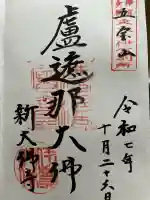 令和七年
十月二十六日
盧遮那大佛
新大佛寺